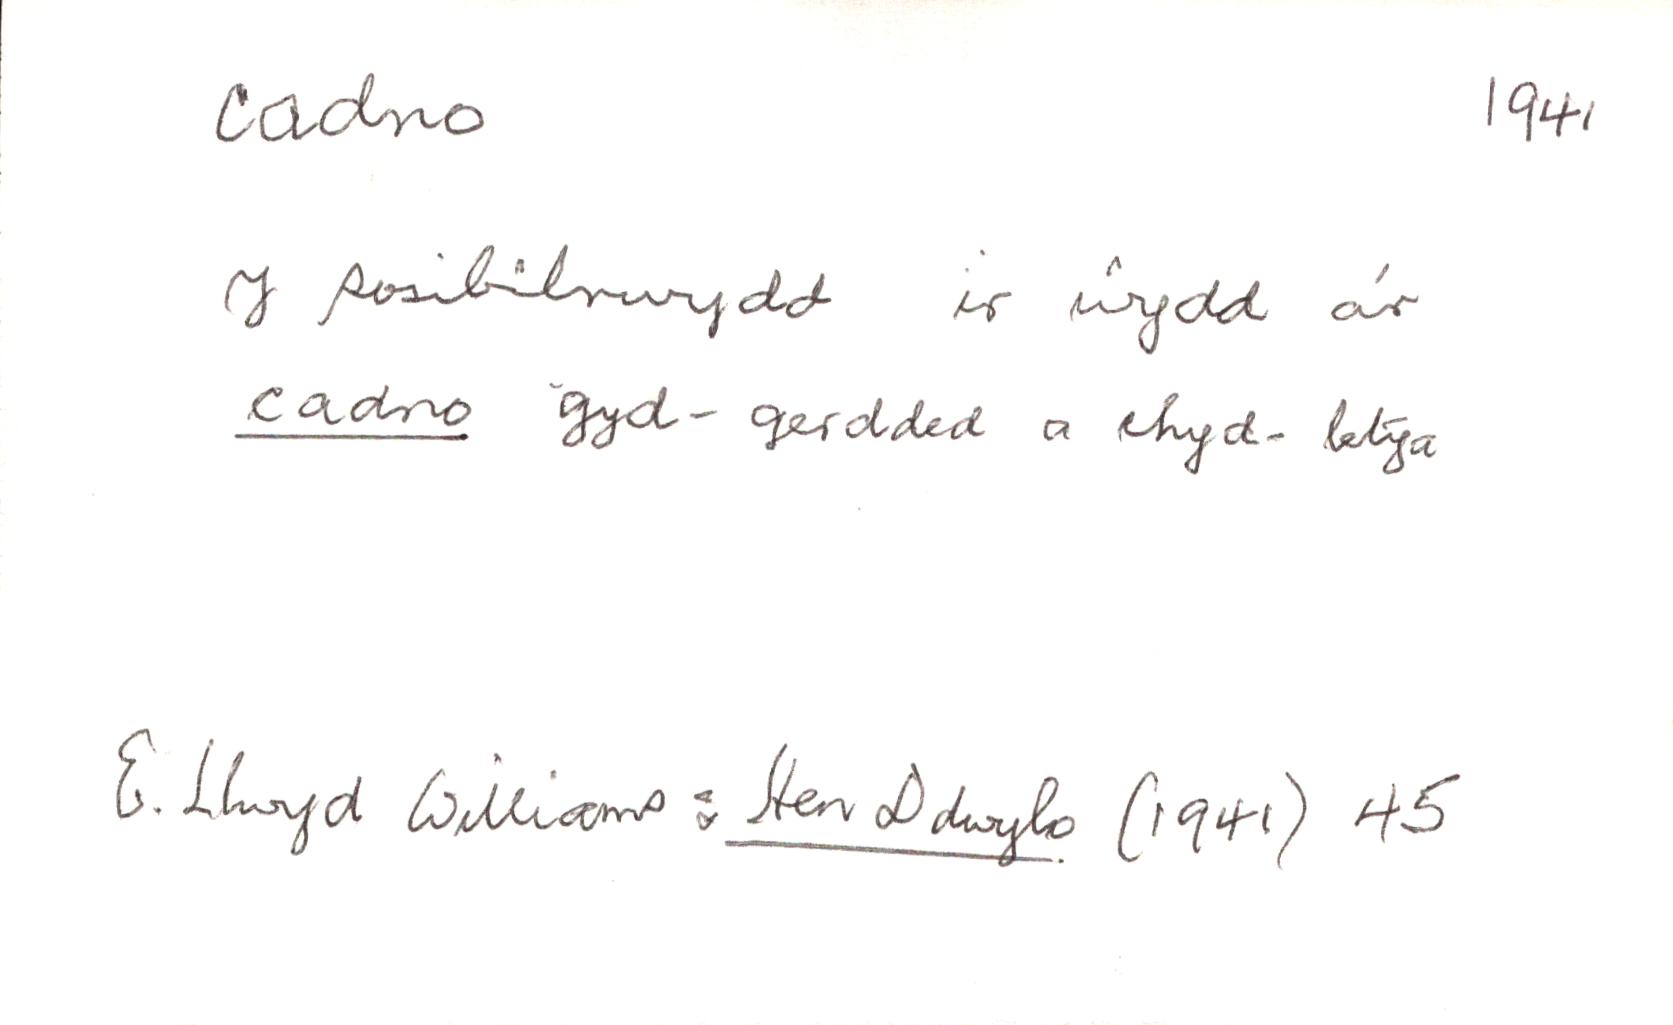 cadno 1941
y posibilrwydd i'r ŵydd a'r
cadno gyd-gerdded a chyd-letya
E. Llwyd Williams : Hen Ddwylo (1941) 45